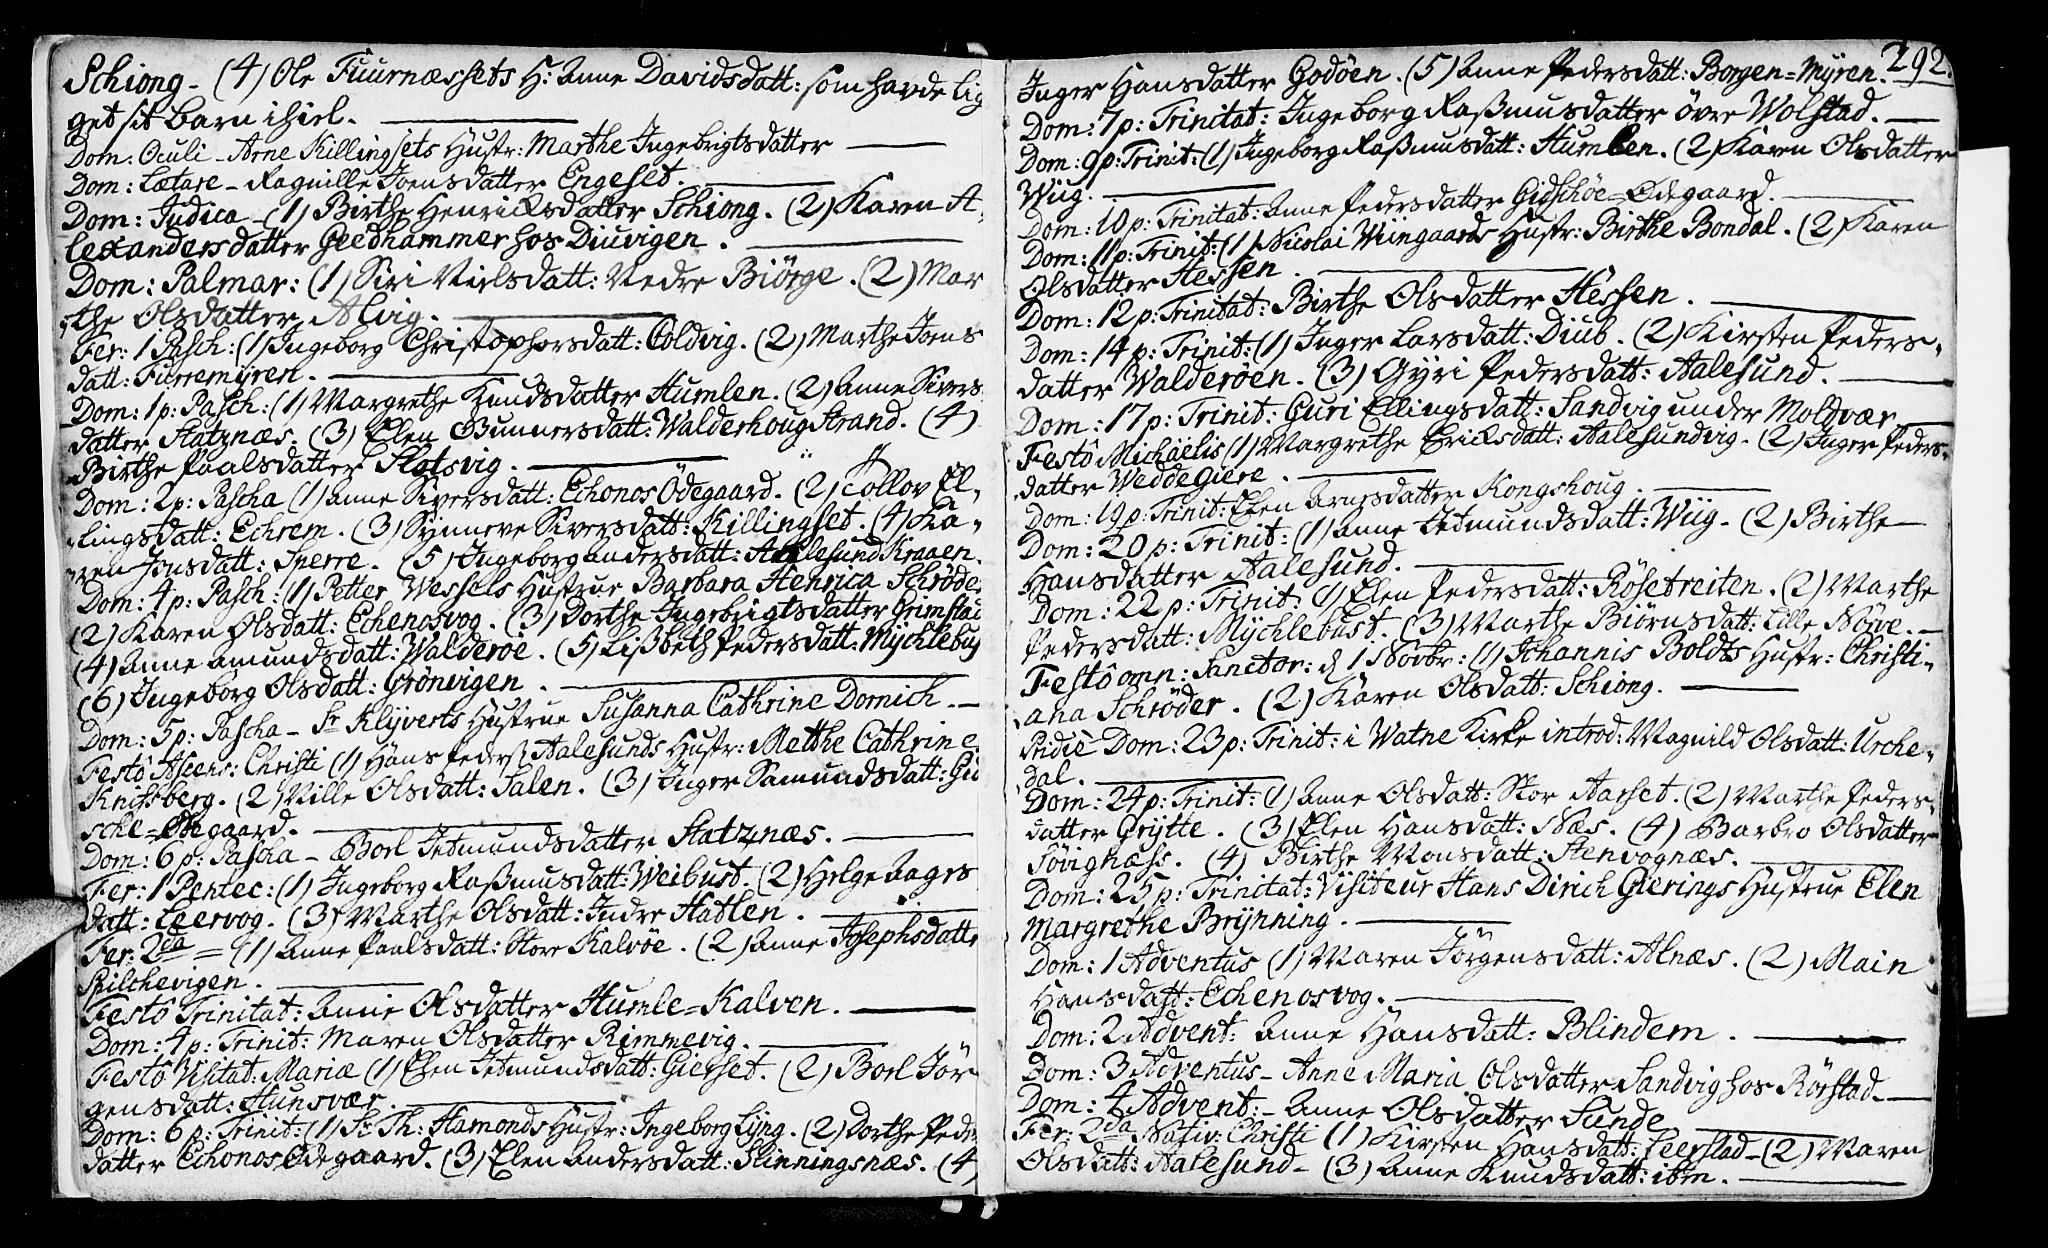 Schiong - (4) Ole Fuurnæssets H: Anne Davidsdatt: som havde lig
get sit barn ihiel.
Dom: Oculi - Arne Killingsets Hustr: Marthe Ingebrigtsdatter
Dom: Lætare - Ragnille Joensdatter Engeset.
Dom: Judica - (1) Birthe Henricksdatter Schiong. (2) Karen A,
lexandersdatter Geedhammer hos Diuvigen.
Dom: Palmar: (1) Siri Nielsdatt: Nedre Biörge. (2) Mar
the Olsdatter Alvig.
Fer: 1 Pasch: (1) Ingeborg Christophorsdatt: Coldvig. (2) Marthe Joens
datt: Furremyren.
Dom: 1 p: Pasch: (1) Margrethe Knudsdatter Humlen. (2) Anne Sivers
datter Statznæs. (3) Elen Gunnersdatt: Walderhoug Strand. (4)
Birthe Paalsdatter Slotsvig.
Dom: 2 p: Pascha (1) Anne Siversdatt: Echonos Ödegaard. (2) Collov El,
lingsdatt: Echrem. (3) Synneve Siversdatt: Killingset. (4) Ka,
ren Jonsdatt: Sperre. (5) Ingeborg Andersdatt: Aalesund Kraaen.
Dom: 4 p: Pasch: (1) Petter Wessels Hustrue Barbara Henrica Schröde
(2) Karen Olsdatt: Echenosvog. (3) Dorthe Ingebrigtsdatter Grimstad
(4) Anne Amundsdatt: Walderöe. (5) Lißbeth Pedersdatt: Mychlebus
(6) Ingeborg Olsdatt: Grönvigen.
Dom: 5 p: Pascha - Sr Klyverts Hustrue Susanna Cathrine Dornich.
Festô Ascens: Christi (1) Hans Pederß Aalesunds Hustr: Metthe Cathrine
Knifsberg. (2) Nille Olsdatt: Salen. (3) Inger Samundsdatt: Gid
sche=Ödegaard.
Dom: 6 p: Pascha - Borl Jetmundsdatter Statznæs.
Fer: 1 Pentec: (1) Ingeborg Raßmusdatt: Weibust. (2) Helge Aages
datt: Leervog. (3) Marthe Olsdatt: Indre Hatlen.
Fer: 2da = (1) Anne Paalsdatt: Store Kalvöe. (2) Anne Josephsdatte
Spilchevigen.
Festô Trinitat: Anne Olsdatter Humle=Kalven.
Dom: 4 p: Trinit: Maren Olsdatter Rimmevig.
Festô Visitat: Mariæ (1) Elen Jetmundsdatt: Gierset. (2) Borl Jör
gensdatt: Hunsvær.
Dom: 6 p: Trinit: (1) Sr Th: Hamonds Hustr: Ingeborg Lyng. (2) Dorthe Peder
datter Echonos Ödegaard. (3) Elen Andersdatt: Slinningsnæs. (4)
292.
Inger Hansdatter Godöen. (5) Anne Pedersdatt: Borgen=Myren.
Dom: 7 p: Trinitat: Ingeborg Raßmusdatter övre Wolstad.
Dom: 9 p: Trinit: (1) Ingeborg Raßmusdatt: Humlen. (2) Karen Olsdatter
Wiig.
Dom: 10 p: Trinitat: Anne Pedersdatter Gidschöe=Ödegaard.
Dom: 11 p: Trinit: (1) Nicolai Wiingaards Hustr: Birthe Bondal. (2) Karen
Olsdatter Hessen.
Dom: 12 p: Trinitat: Birthe Olsdatter Hessen.
Dom: 14 p: Trinit: (1) Inger Larsdatt: Diub. (2) Kirsten Peders,
datter Walderöen. (3) Gyri Pedersdatt: Aalesund.
Dom: 17 p: Trinit: Guri Ellingsdatt: Sandvig under Moldvær
Festô Michaëlis (1) Margrethe Ericksdatt: Aalesundvig. (2) Inger Peders,
datter Weddegiere.
Dom: 19 p: Trinit: Elen Arnesdatter Kongshoug.
Dom: 20 p: Trinit: (1) Anne Jetmundsdatt: Wiig. (2) Birthe
Hansdatter Aalesund.
Dom: 22 p: Trinit: (1) Elen Pedersdatt: Rösetreiten. (2) Marthe
Pedersdatt: Mychlebust. (3) Marthe Biörnsdatt: Lille Nörve.
Festô omn: Sanctor: d 1 Novbr: (1) Johannis Boldts Hustr: Christi,
ana Schröder. (2) Karen Olsdatt: Schiong.
Pridiè Dom: 23 p: Trinit: i Watne Kirke introd: Magnild Olsdatt: Urche,
dal.
Dom: 24 p: Trinit: (1) Anne Olsdatt: Stor Aarset. (2) Marthe Peders,
datter Grytte. (3) Elen Hansdatt: Næs. (4) Barbro Olsdatter
Sövignæss. (4) Birthe Monsdatt: Stenvognæs.
Dom: 25 p: Trinitat: Visiteur Hans Dirich Gierings Hustrue Elen
Margrethe Brynning.
Dom: 1 Adventus (1) Maren Jörgensdatt: Alnæs. (2) Marn
Hansdatt: Echenosvog.
Dom: 2 Advent: Anne Hansdatt: Blindem.
Dom: 3 Adventus - Anne Maria Olsdatter Sandvig hos Rörstad.
Dom: 4 Advent: - Anne Olsdatter Sunde
Fer: 2da Nativ: Christi (1) Kirsten Hansdatt: Leerstad - (2) Maren
Olsdatt: Aalesund - (3) Anne Knudsdatt: ibm.